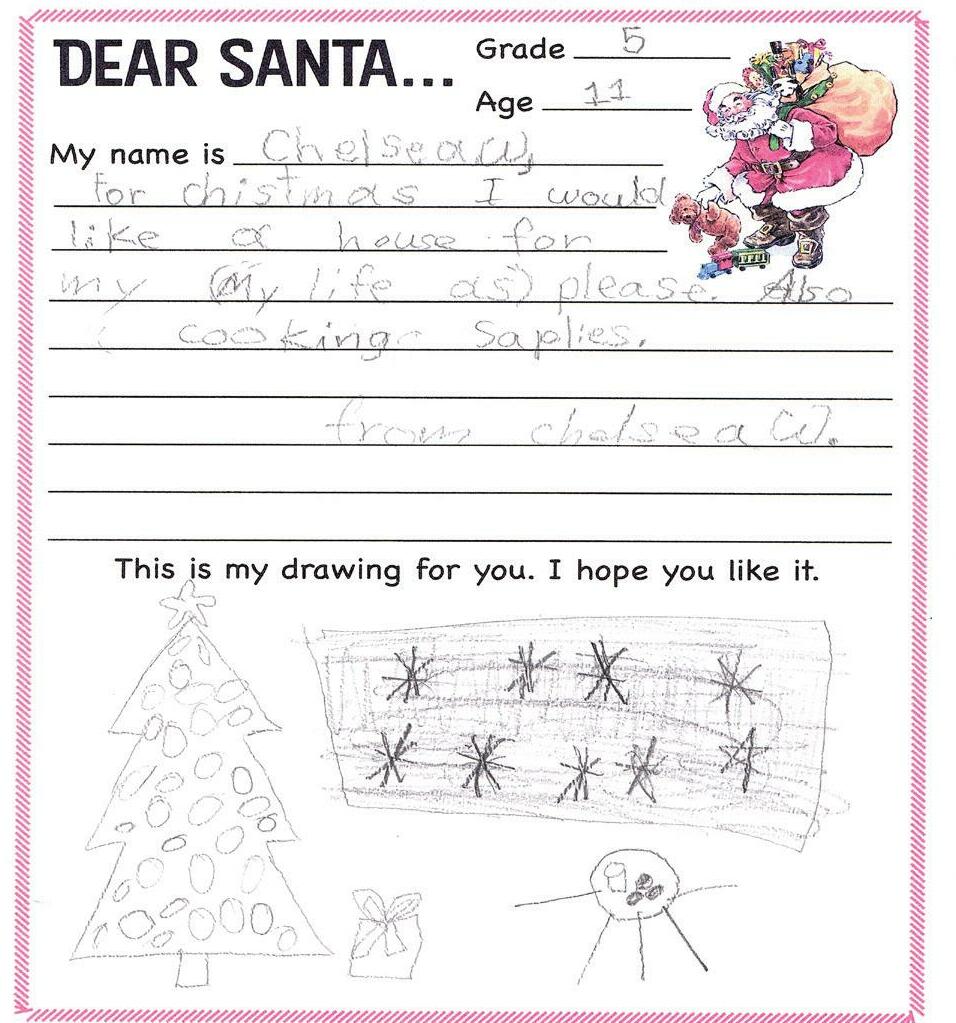 DEAR SANTA...
Grade 5
Age 11
My name is Chelsea W,
for chistmas I would
like a house for
my (My life as) please. Also
cooking Saplies.
from chelsea W.
This is my drawing for you. I hope you like it.